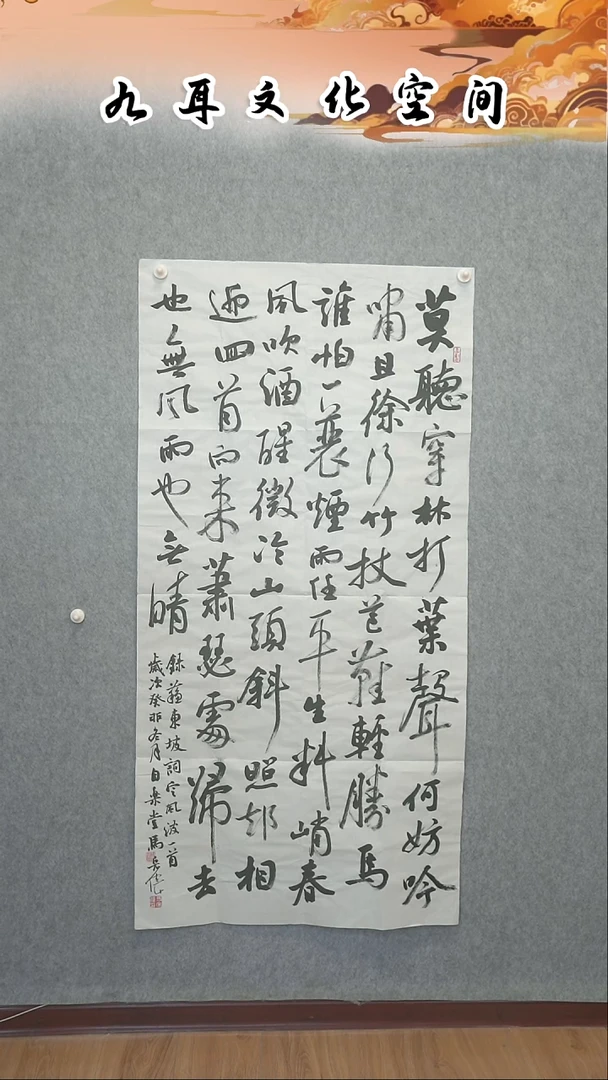 九耳文化空间
莫聽穿林打葉聲何妨吟
嘯且徐行竹杖芒鞋輕勝馬
誰怕一蓑煙雨任平生料峭春
風吹酒醒微冷山頭斜照却相
迎回首向来蕭瑟處歸去
也無風雨也无晴
錄蘇東坡詞定風波一首
歲次癸卯冬月自樂堂馬